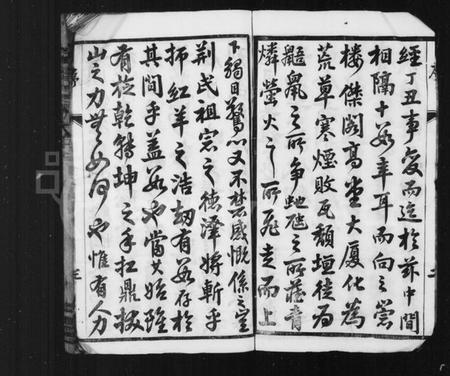 經丁丑事變而迄於茲中間
相隔十數年耳而向之崇
樓傑閣高堂大厦化為
荒草寒煙敗瓦頹垣徒為
鼯鼠之所爭虺之所藏青
燐螢火之所飛走而上
下觸目驚心又不禁感慨係之豈
荆氏祖宗之德澤將斬乎
抑紅羊之浩劫有數存於
其間乎蓋數也當其始雖
有旋乾轉坤之手扛鼎拔
山之力無如何也惟有人力
序
二
序
三